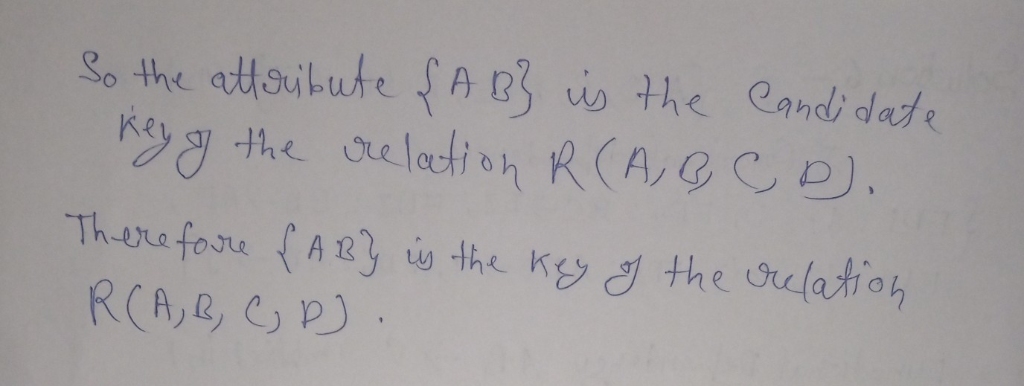 So the attribute {AB} is the Candidate
key of the relation R(A, B, C, D).
Therefore {AB} is the key of the relation
R(A, B, C, D).